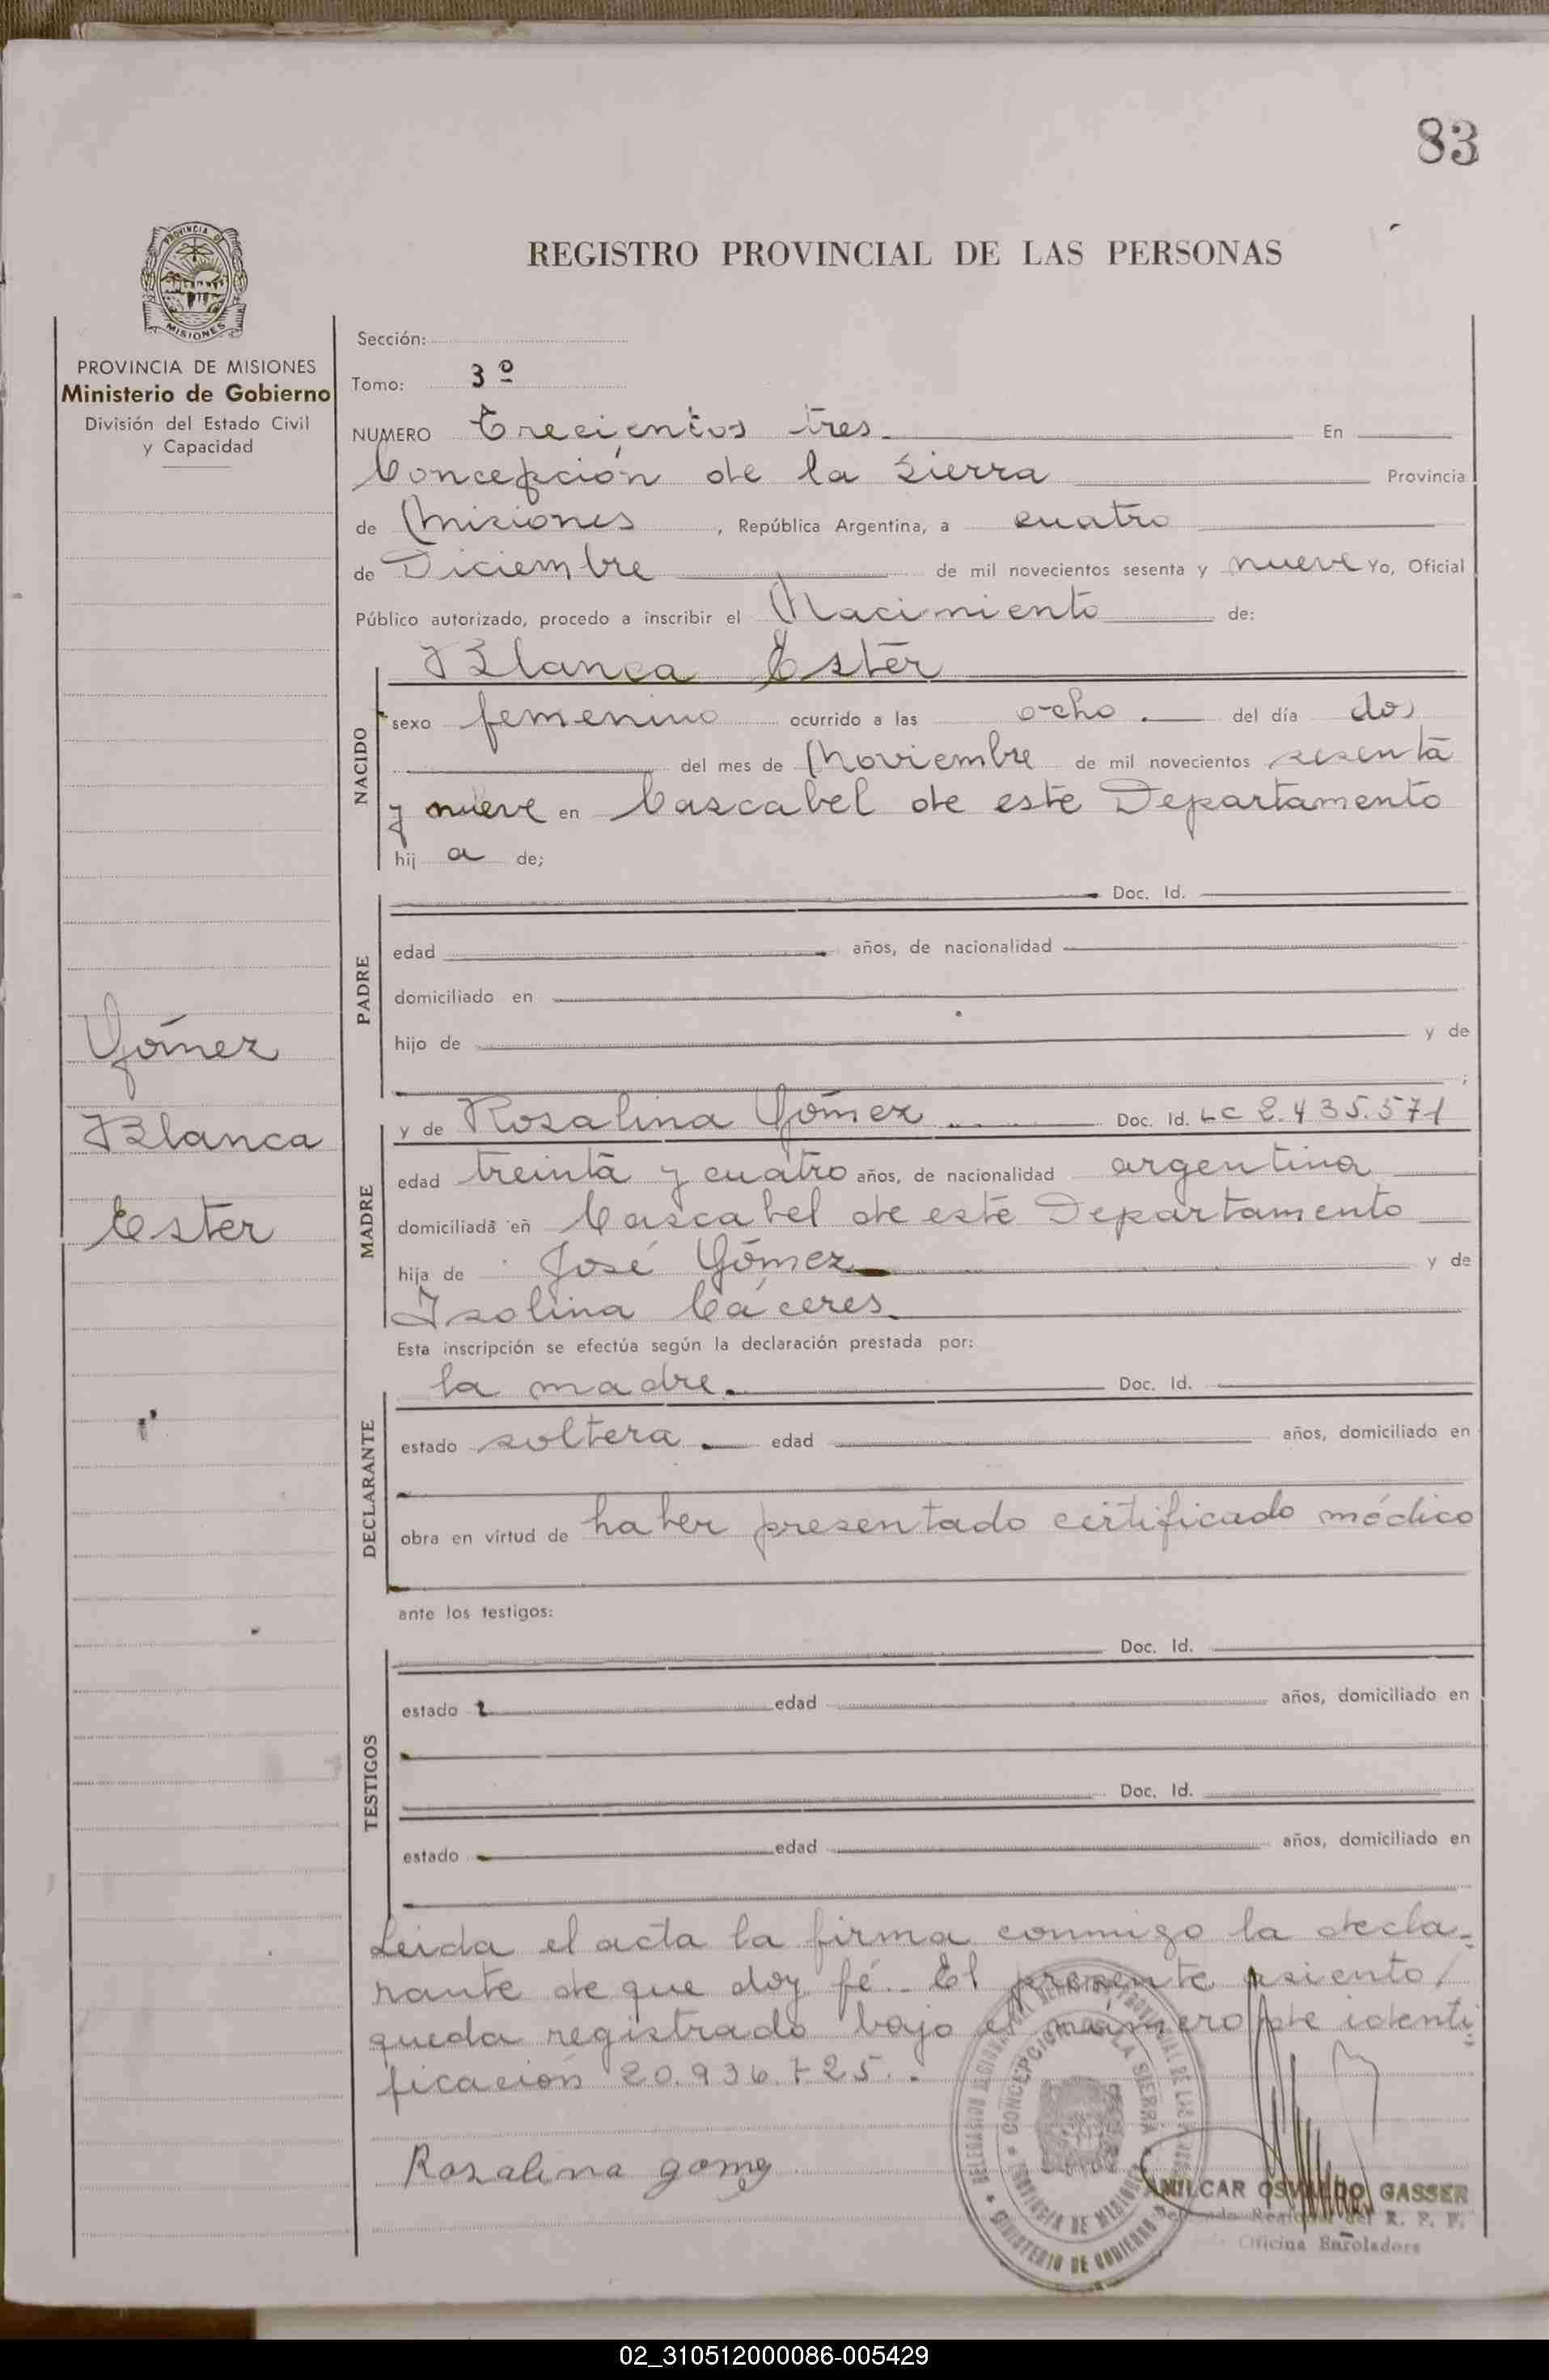 83
REGISTRO PROVINCIAL DE LAS PERSONAS
PROVINCIA DE
MISIONES
PROVINCIA DE MISIONES
Ministerio de Gobierno
División del Estado Civil
y Capacidad
Sección:
Tomo: 3º
NUMERO Trecientos tres. En
Concepción de la Sierra Provincia
de Misiones, República Argentina, a cuatro
de Diciembre de mil novecientos sesenta y nueve Yo, Oficial
Público autorizado, procedo a inscribir el Nacimiento de:
NACIDO
Blanca Ester
sexo femenino ocurrido a las ocho. del día dos
del mes de Noviembre de mil novecientos sesenta
y nueve en Cascabel de este Departamento
hij a de;
PADRE
Doc. Id.
edad años, de nacionalidad
domiciliado en
hijo de y de
;
Gómez
Blanca
Ester
MADRE
y de Rosalina Gómez Doc. Id. LC 2.435.571
edad treinta y cuatro años, de nacionalidad argentina
domiciliada en Cascabel de este Departamento
hija de José Gómez y de
Isolina Cáceres.
Esta inscripción se efectúa según la declaración prestada por:
DECLARANTE
la madre. Doc. Id.
estado soltera. edad años, domiciliado en
obra en virtud de haber presentado certificado médico
ante los testigos:
TESTIGOS
Doc. Id.
estado edad años, domiciliado en
Doc. Id.
estado edad años, domiciliado en
Leida el acta la firma conmigo la decla-
rante de que doy fé.. El presente asiento
queda registrado bajo el número de identi
ficación 20.936.725..
Rosalina gomez
CONCEPCION DE LA SIERRA
PROVINCIA DE MISIONES
MINISTERIO DE GOBIERNO
AMILCAR OSVALDO GASSER
Delegado Regional del R. P. P.
Oficina Enroladora
02_310512000086-005429